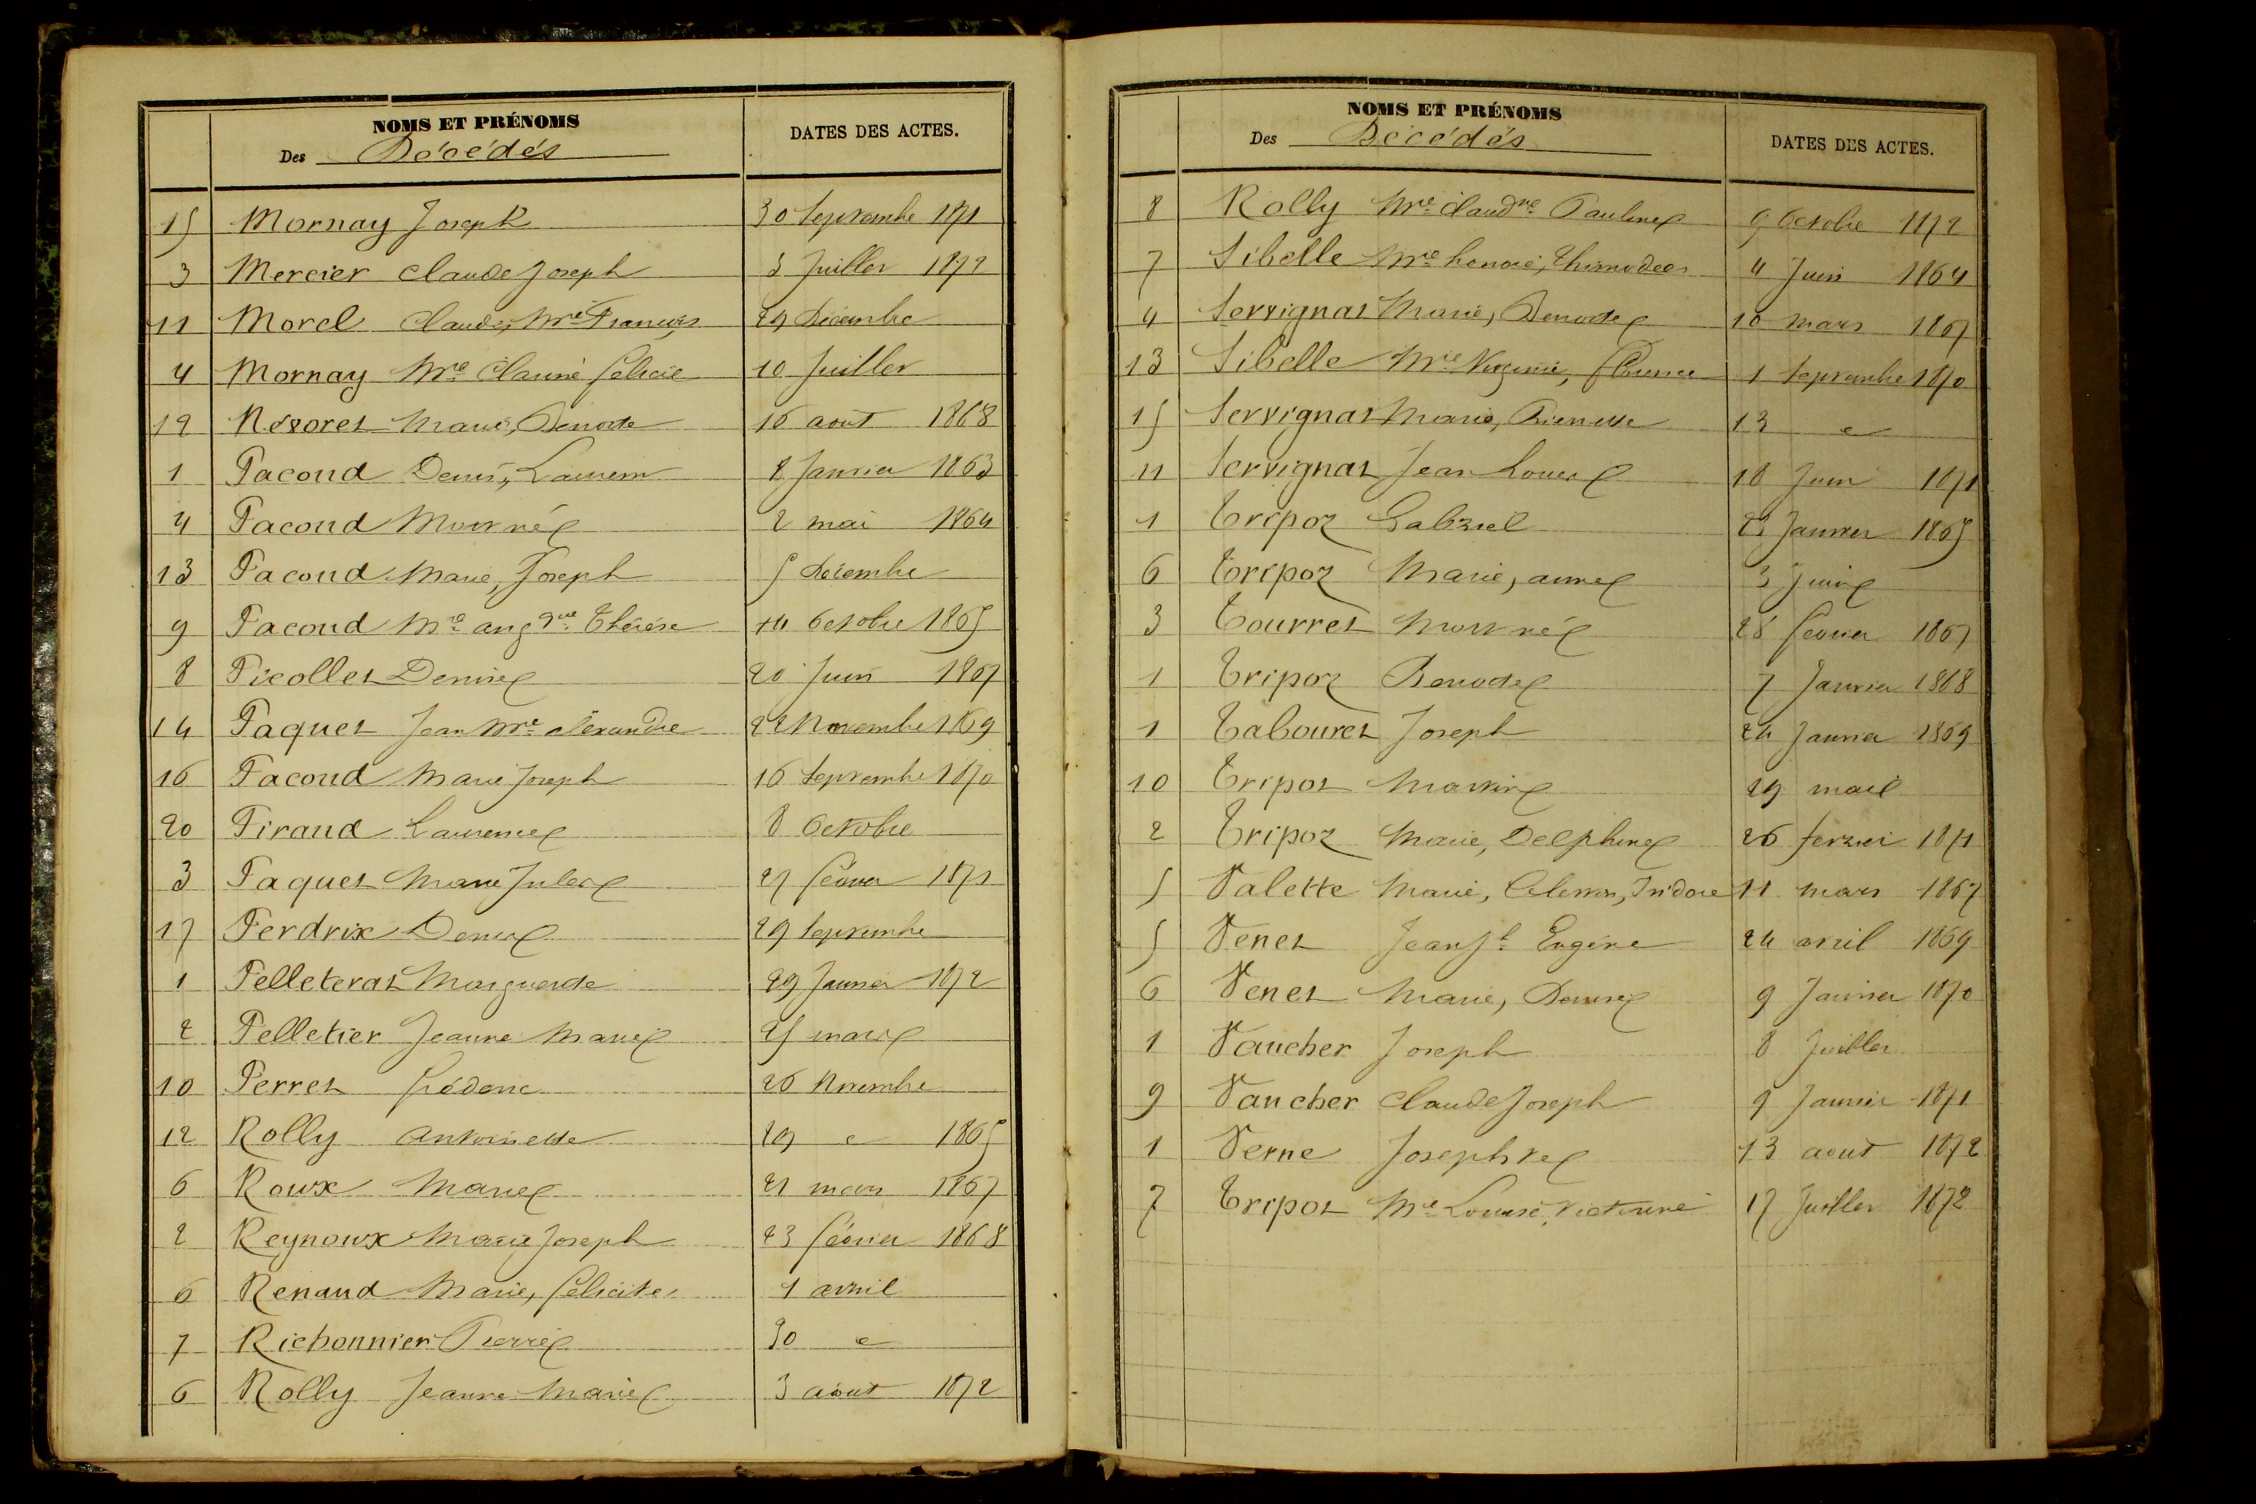 NOMS ET PRÉNOMS
Des Décédés
DATES DES ACTES.
15 Mornay Joseph 30 Septembre 1871
3 Mercier Claude Joseph 3 Juillet 1872
11 Morel Claude, Mie François 29 Décembre
4 Mornay Mie Claurine Félicie 10 Juillet
12 Nézoret Marie, Benoite 16 aout 1868
1 Pacoud Denis, Laurent 8 Janvier 1863
4 Pacoud Mort né 2 mai 1864
13 Pacoud Marie, Joseph 5 Décembre
9 Pacoud Mie Angque Thérèse 14 Octobre 1865
8 Picollet Denise 20 Juin 1867
14 Paquet Jean Mie Alexandre 22 Novembre 1869
16 Pacoud Marie Joseph 16 Septembre 1870
20 Piraud Laurence 8 Octobre
3 Paquet Marie Jules 27 février 1871
17 Perdrix Denis 29 Septembre
1 Pelleterat Marguerite 29 Janvier 1872
2 Pelletier Jeanne Marie 25 mars
10 Perret frédéric 26 Novembre
12 Rolly Antoinette 29 " 1865
6 Roux Marie 21 mars 1867
2 Reynoux Marie Joseph 23 février 1868
6 Renaud Marie, félicité 1 avril
7 Richonnier Pierre 30 "
6 Rolly Jeanne Marie 3 aout 1872
NOMS ET PRÉNOMS
Des Décédés
DATES DES ACTES.
8 Rolly Mie Claudne Pauline 9 Octobre 1872
7 Sibelle Mie 4 Juin 1864
4 Servignat Marie, Benoite 10 mars 1867
13 Sibelle Mie Virginie, Florence 1 Septembre 1870
15 Servignat Marie, Pierrette 13 "
11 Servignat Jean Louis 18 Juin 1871
1 Tripoz Gabriel 23 Janvier 1865
6 Tripoz Marie, anne 3 Juin
3 Tourret Mort né 28 février 1867
1 Tripoz Benoite 7 Janvier 1868
1 Tabouret Joseph 24 Janvier 1869
10 Tripot Martin 29 mai
2 Tripoz Marie, Delphine 26 fevrier 1871
5 Valette Marie, Celestin, Isidore 11 mars 1867
5 Venet Jean Jh Eugène 24 avril 1869
6 Venet Marie, Denise 9 Janvier 1870
1 Vaucher Joseph 8 Juillet
9 Vaucher Claude Joseph 9 Janvier 1871
1 Verne Josephte 13 aout 1872
7 Tripot Mie Louise, Victorine 17 Juillet 1872